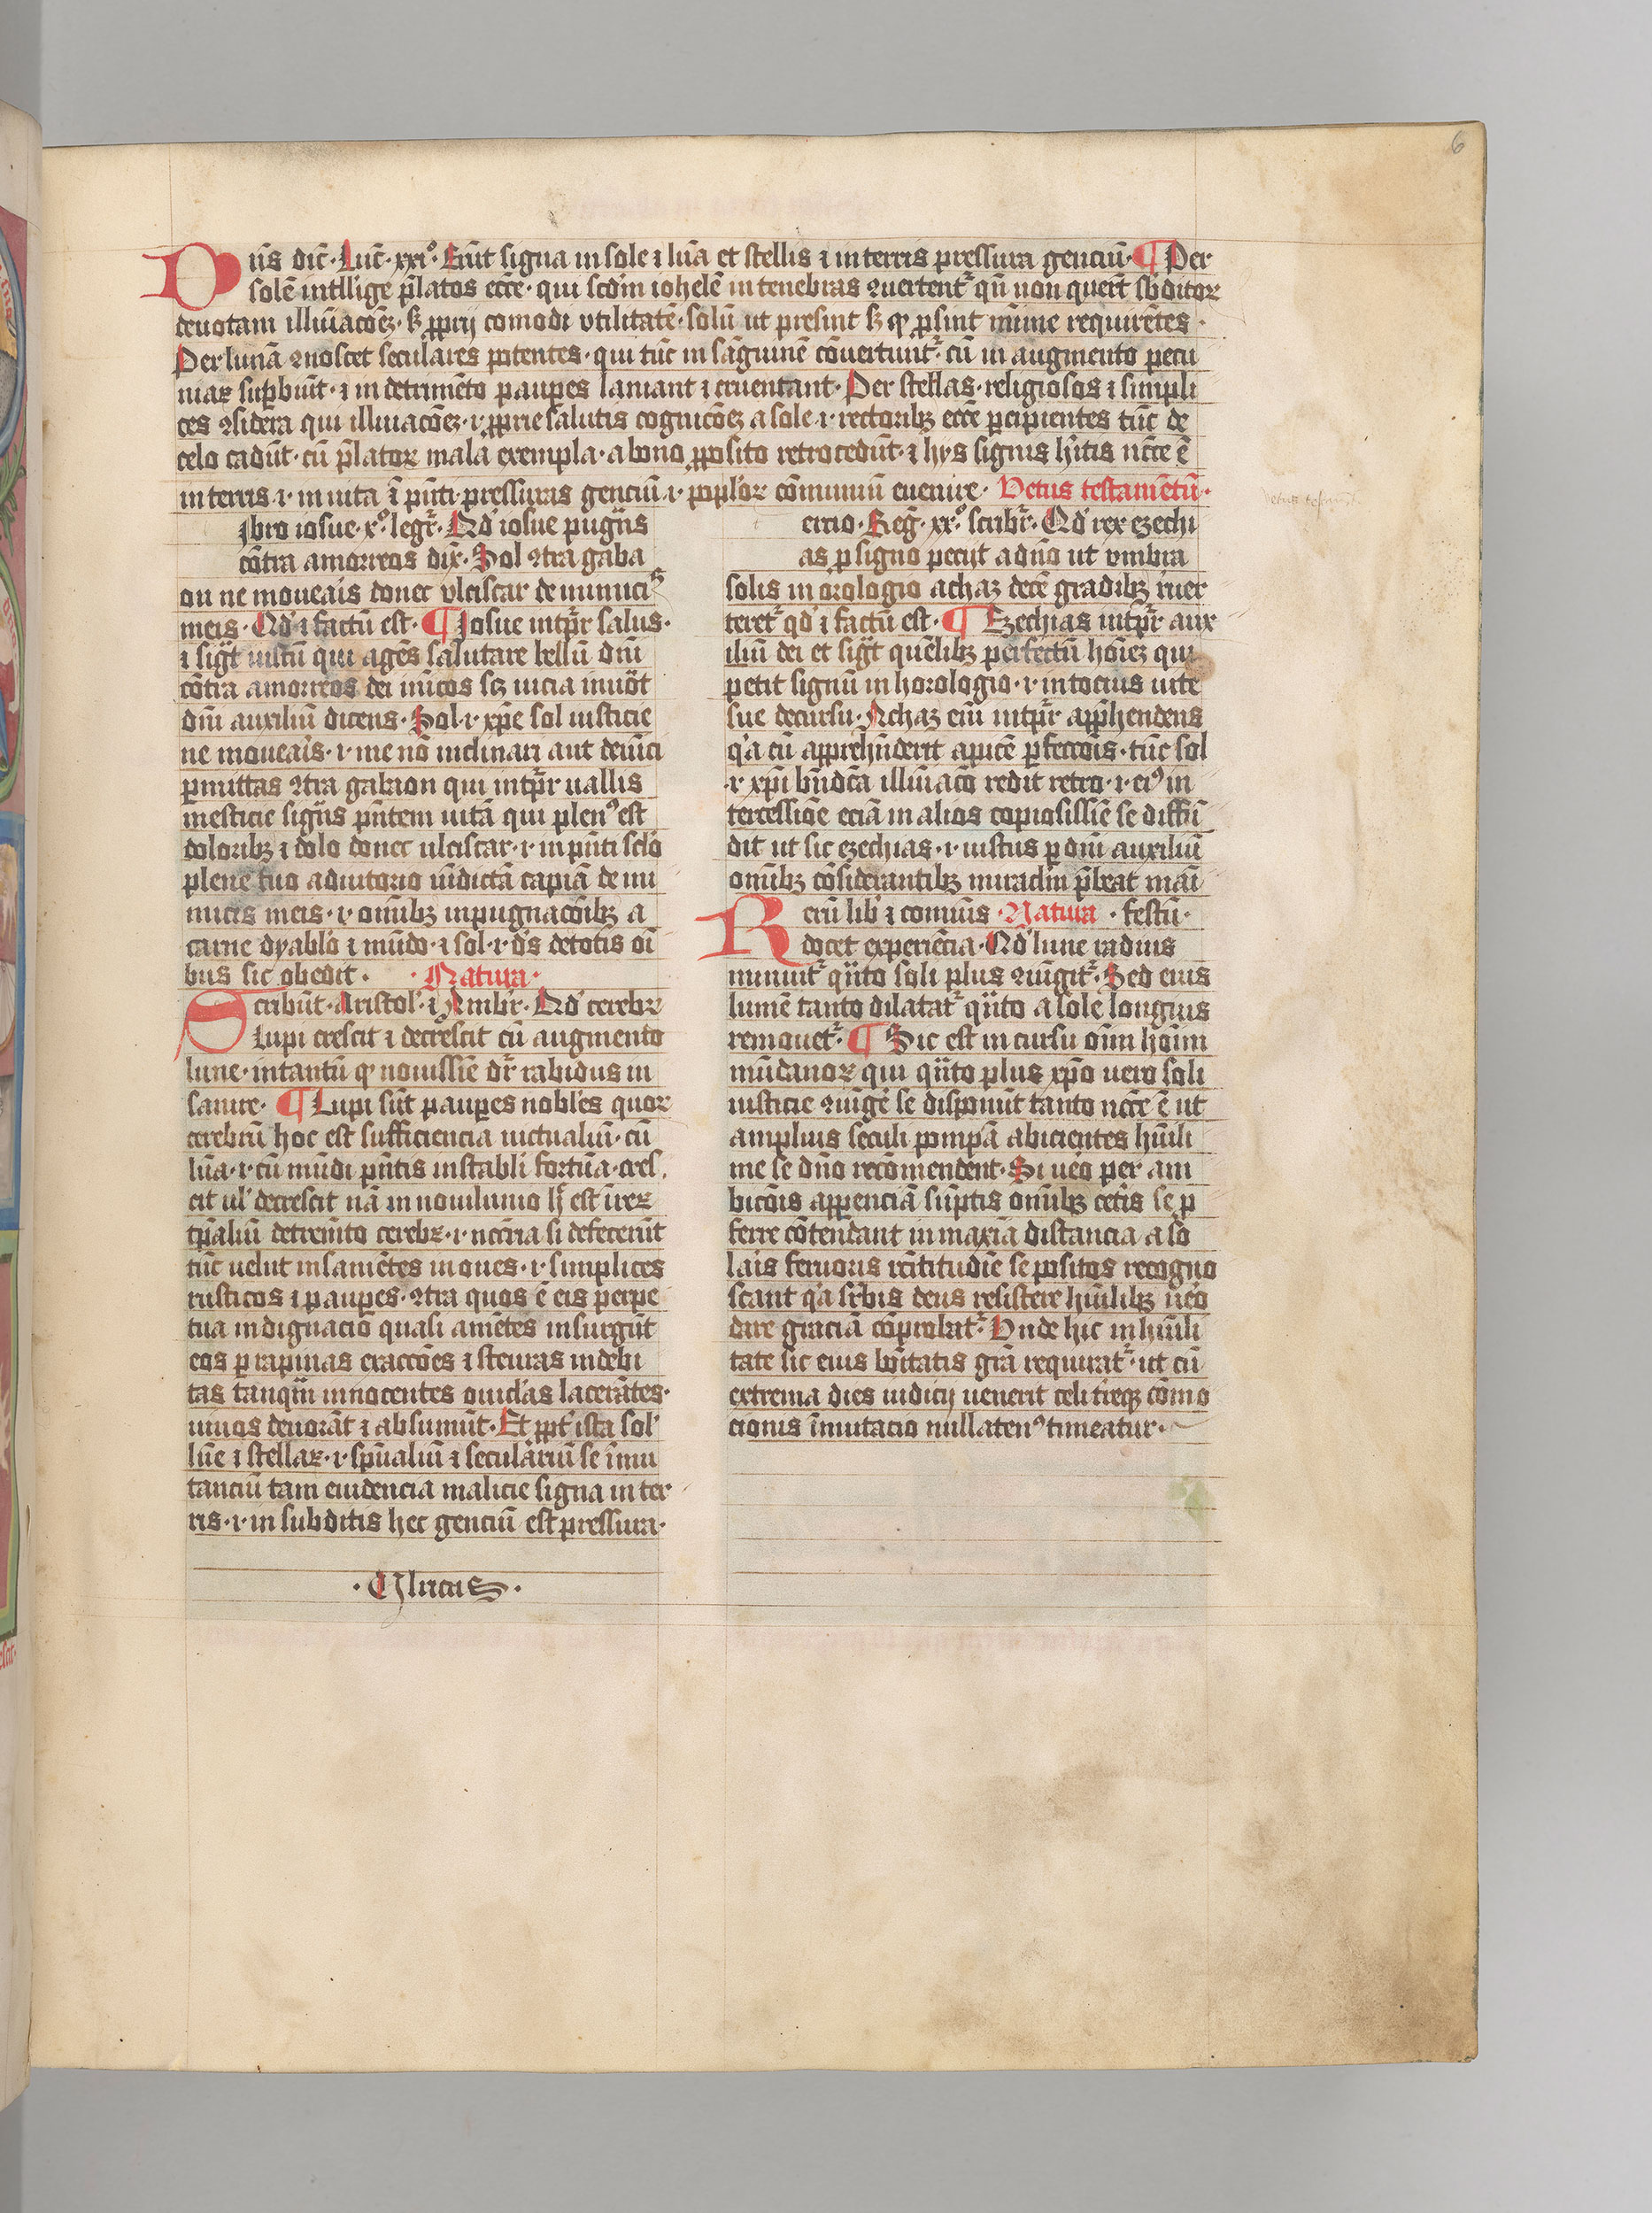 6
Dn̄s dic̄ · Luc̄ · xxi° · Erūt signa in sole ⁊ lūa et stellis ⁊ in terris pressura genciū · ¶ Per
solē intllige p̄latos ecc̄e · qui scd̄m iohelē in tenebras ꝯuertentᷣ qn̄ non querūt sb̄ditoꝝ
deuotam illuīacōeꝫ · sꝫ ꝓprij comodi vtilitatē · solū ut presint sꝫ ꝙ ꝓsint mīnime requirētes ·
Per lunā ꝯnoscet seculares potentes · qui tūc in sāguinē cōuertuntᷣ · cū in augmento pecu
niaꝝ suꝑbiūt · ⁊ in detrimēto pauꝑes laniant ⁊ cruentant · Per stellas · religiosos ⁊ simpli
ces ꝯsidera qui illuīacōeꝫ · i · ꝓprie salutis cognicōeꝫ a sole · i · rectoribꝫ ecc̄e ꝑcipientes tūc de
celo cadūt · cū p̄latoꝝ mala exempla · a bono ꝓposito retrocedūt · ⁊ hys signis hītis ncc̄e ē
in terris · i · in uita ī pn̄ti pressuras genciū · i · poploꝝ cōmuniū euenire · Vetus testamētū ·
vetus testamēt
ibro iosue · x° · legrᷣ · Qd' iosue pugn̄s
cōtra amorreos dix̄ · Sol ꝯtra gaba
on ne moueais donec vlciscar de inimicis
meis · Qd' ⁊ factū est · ¶ Josue intp̄r salus ·
⁊ sigt̄ iustū qui agēs salutare bellū dn̄i
cōtra amorreos dei inīcos scꝫ uicia inuōt
dn̄i auxiliū dicens · Sol · i · xp̄e sol iusticie
ne moueais · i · me nō inclinari aut deuīci
ꝑmittas ꝯtra gabaon qui intp̄r uallis
mesticie sign̄s pn̄tem uitā qui plenꝰ est
doloribꝫ ⁊ dolo donec ulciscar · i · in pn̄ti sclō
plene tuo adiutorio uīdictā capiā de ini
micis meis · i · omībꝫ inpugnacōibꝫ a
carne dyablo ⁊ mūdo · ⁊ sol · i · d's deuotis oī
bus sic obedit · · Natura ·
Scribūt · Aristol' · ⁊ Ambr̄ · Qd' cerebꝝ
Lupi crescit ⁊ decrescit cū augmento
lune · intantū ꝙ nouissīe dr̄ rabidus in
sanire · ¶ Lupi sūt pauꝑes nobl'es quoꝝ
cerebrū hoc est sufficiencia uictualiū · cū
lūa · i · cū mūdi pn̄tis instabli fortūa · cres
cit ul' decrescit nā in nouilunio
tp̄aliū detremto cerebꝝ · i · ncc̄ria si defecerūt
tūc uelut insaniētes in oues · i · simplices
rusticos ⁊ pauꝑes · ꝯtra quos ē eis perpe
tua indignacio quasi amētes insurgūt
eos ꝑ rapinas exaccōes ⁊ steuras indebi
tas tanqm̄ innocentes ouicl'as lacerātes ·
uiuos deuorāt ⁊ absumūt · Et ꝓpt' ista sol'
lūe ⁊ stellaꝝ · i · sp̄ualiū ⁊ seculāriū se īmu
tanciū tam euidencia malicie signa in ter
ris · i · in subditis hec genciū est pressura ·
ercio · Reḡ · xx° · scribrᷣ · Qd' rex ezechi
as ꝑ signo peciit a dn̄o ut vmbra
solis in orologio achaz decē gradibꝫ iuer
teretᷣ qd' ⁊ factū est · ¶ Ezechias intp̄r aux
iliū dei et sigt̄ quēlibꝫ perfectū hoīeꝫ qui
petit signū in horologio · i · in tocius uite
sue decursu · Achaz em̄ intp̄r app̄hendens
q'a cū apprehn̄derit apicē ꝑfeccōis · tūc sol
· i · xp̄i bn̄dc̄a illuīaco redit retro · i · eiꝰ in
tercessiōe eciā in alios copiosissīe se diffū
dit ut sic ezechias · i · iustus ꝑ dn̄i auxiliū
omībꝫ cōsiderantibꝫ mirād'm p̄beat
Rerū lib' ⁊ comūis · Natura · festū ·
docet experiēcia · Qd' lune radius
minuitᷣ q̄nto soli plus ꝯiūgitᷣ · Sed eius
lumē tanto dilatatᷣ q̄nto a sole longius
remouetᷣ · ¶ Sic est in cursu om̄ hoim
mūdanoꝝ qui q̄nto plus xp̄o uero soli
iusticie ꝯiūgē se disponūt tanto ncc̄e ē ut
amplius seculi pompā abicientes hūili
me se dn̄o recōmendent · Si uēo per am
bicōis appenciā suꝑtis omībꝫ cetis se p̄
ferre cōtendant in maxīa distancia a so
lais feruoris rc̄titudīe se positos recogno
scant q'a sr̄bis deus resistere hūilibꝫ uēo
dare graciā cōprobatᷣ · Vnde hic in hūili
tate sic eius bōitatis grā requiratᷣ · ut cū
extrema dies iudicij uenerit celi treqꝫ cōmo
cionis īmutacio nullatenꝰ timeatur ·